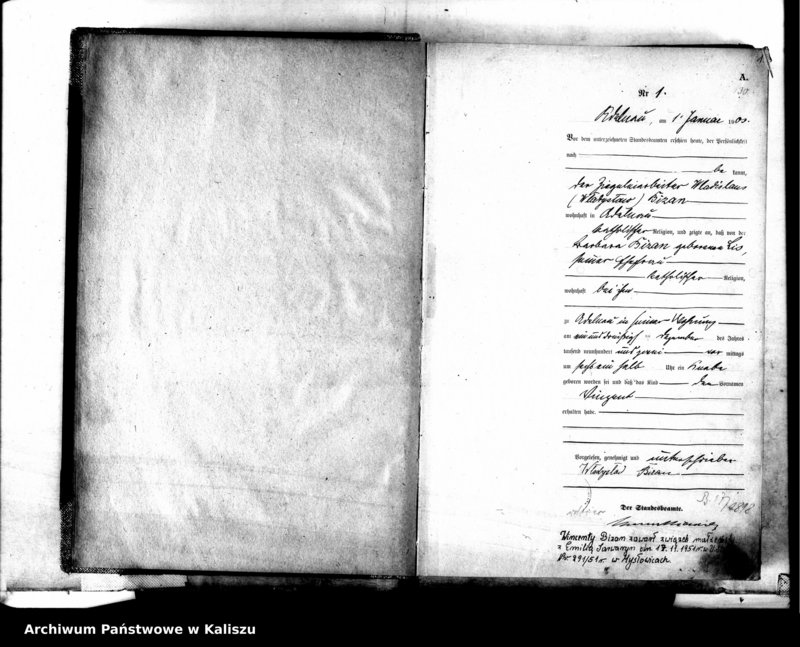 A.
Nr 1.
Adelnau, am 1. Januar 190
Vor dem unterzeichneten Standesbeamten erschien heute, der Persönlichkeit
nach
be kannt,
der Ziegeleiarbeiter Wladislaus
(Władysław) Bizan
wohnhaft in Adelnau
katholischer Religion, und zeigte an, daß von der
Barbara Bizan geborenen Lis,
seiner Ehefrau
katholischer Religion,
wohnhaft bei ihm
zu Adelnau in seiner Wohnung
am ein und dreißigsten Dezember des Jahres
tausend neunhundert und zwei vor mittags
um sechs ein halb Uhr ein Knabe
geboren worden sei und daß das Kind den Vornamen
Vinzent
erhalten habe.
Vorgelesen, genehmigt und unterschrieben
Władysław Bizan
Der Standesbeamte.
Vincenty Bizan zawarł związek
z Emilią dn 17.11.1951 r. w
Nr 891/51 r. w Mysłowicach
Archiwum Państwowe w Kaliszu